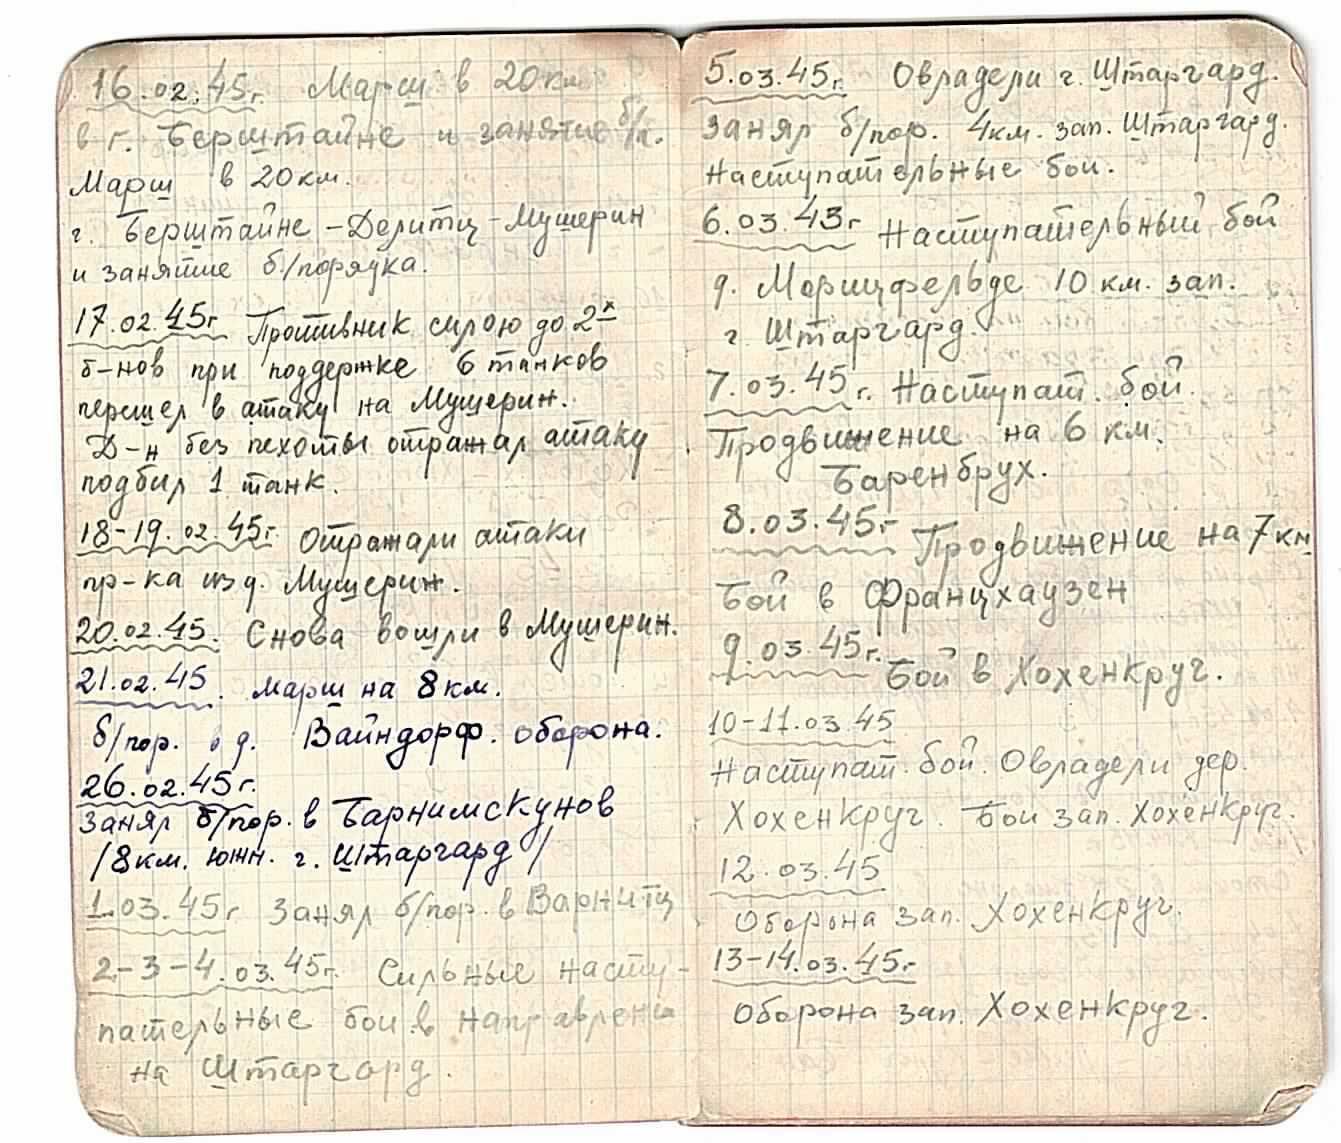 16.02.45г. Марш в 20км
в г. Берштайне и занятие б/п.
Марш в 20км.
г. Берштайне - Делитц - Мушерин
и занятие б/порядка.
17.02.45г Противник силою до 2х
б-нов при поддержке 6 танков
перешел в атаку на Мушерин.
Д-н без пехоты отражал атаку
подбил 1 танк.
18-19.02.45г. Отражали атаки
пр-ка из д. Мушерин.
20.02.45. Снова вошли в Мушерин.
21.02.45. Марш на 8км.
б/пор. в д. Вайндорф. оборона.
26.02.45г.
Занял б/пор. в Барнимскунов
/8км. южн. г. Штаргард/
1.03.45г Занял б/пор. в Варнитц
2-3-4.03.45г. Сильные насту-
пательные бои в направлении
на Штаргард.
5.03.45г. Овладели г. Штаргард.
Занял б/пор. 4км. зап. Штаргард.
Наступательные бои.
6.03.43г Наступательный бой
д. Морицфельде 10 км. зап.
г. Штаргард.
7.03.45г. Наступат. бой.
Продвижение на 6 км.
Баренбрух.
8.03.45г Продвижение на 7км
Бой в Францхаузен
9.03.45г. Бой в Хохенкруг.
10-11.03.45
Наступат. бой. Овладели дер.
Хохенкруг. Бои зап. Хохенкруг.
12.03.45
Оборона зап. Хохенкруг.
13-14.03.45г
Оборона зап. Хохенкруг.